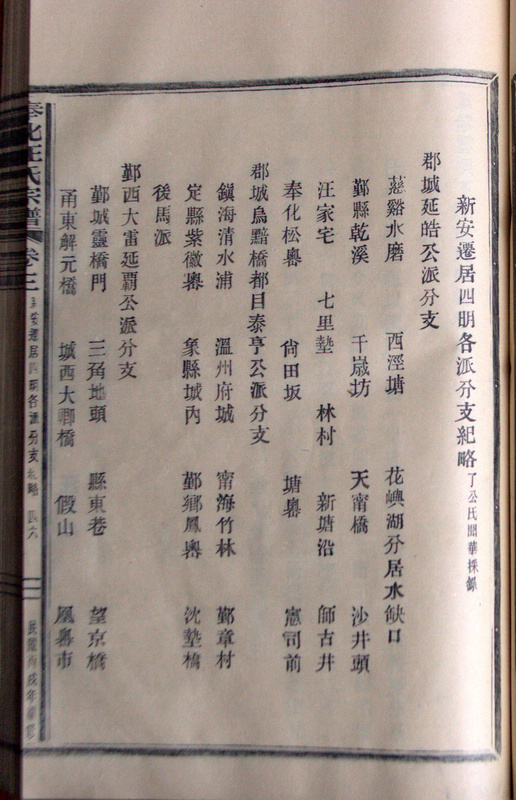 新安遷居四明各派分支紀略
郡城延皓公派分支
慈谿水磨 西涇塘 花嶼湖分居水缺口
鄞縣乾溪 千嵗坊 天甯橋 沙井頭
汪家宅 七里墊 林村 新塘沿 師古井
奉化松嶴 尙田坂 塘嶴 憲司前
郡城烏黯橋都目泰亨公派分支
鎭海清水浦 溫州府城 甯海竹林 鄞章村
定縣紫微嶴 象縣城內 鄞鄉鳳嶴 沈墊橋
後馬派
鄞西大雷延覇公派分支
鄞城靈橋門 三角地頭 縣東巷 望京橋
甬東解元橋 城西大卿橋 假山 鳳嶴市
奉化汪氏宗譜 卷之 新安遷居四明各派分支紀略 四六